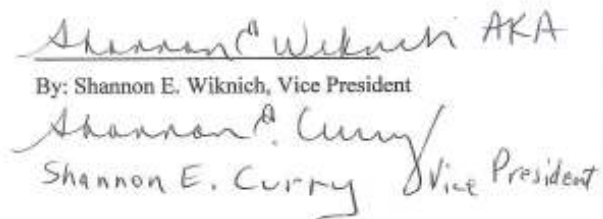 Shannon E Wiknich AKA
By: Shannon E. Wiknich, Vice President
Shannon E. Curry
Shannon E. Curry Vice President